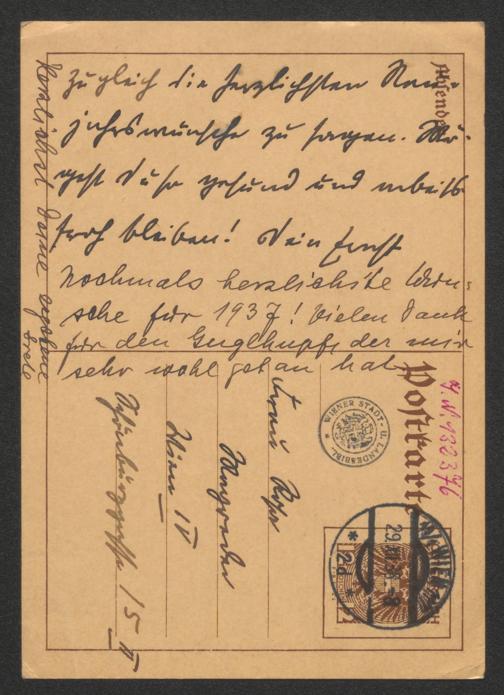 zugleich die herzlichsten Neu-
jahrswünsche zu sagen. Mö-
gest Du so gesund und arbeits
froh bleiben! Dein Ernst
Nochmals herzlichste Wün-
sche für 1937! Vielen Dank
für den Guglhupf, der mir
sehr wohl getan hat.
Herzlichst Deine ergebene
Absender
Postkarte
WIENER STADT- U. LANDESBIBL.
Frau Rosa
Mayreder
Wien IV
Schönburggasse 15 II
WIEN
29. XII. 36
* 2d *